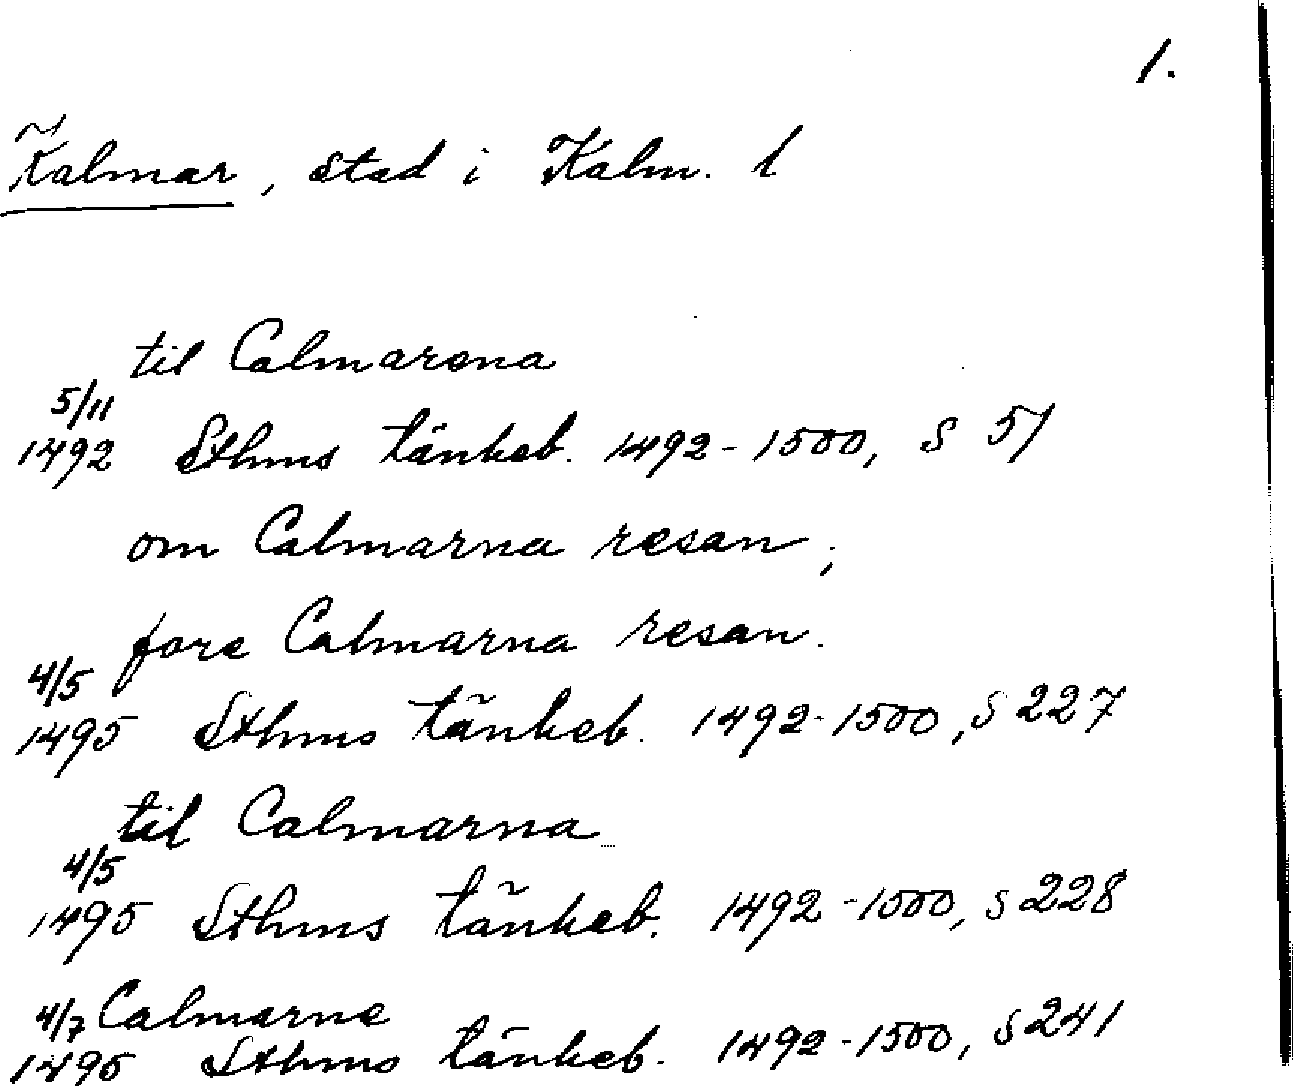 1.
Kalmar, stad i Kalm. l
til Calmarena
5/11
1492 Sthms tänkeb. 1492-1500, s 51
om Calmarna resan;
fore Calmarna resan.
4/5
1495 Sthms tänkeb. 1492-1500, s 227
til Calmarna
4/5
1495 Sthms tänkeb. 1492-1500, s 228
4/7 Calmarne
1495 Sthms tänkeb. 1492-1500, s 241